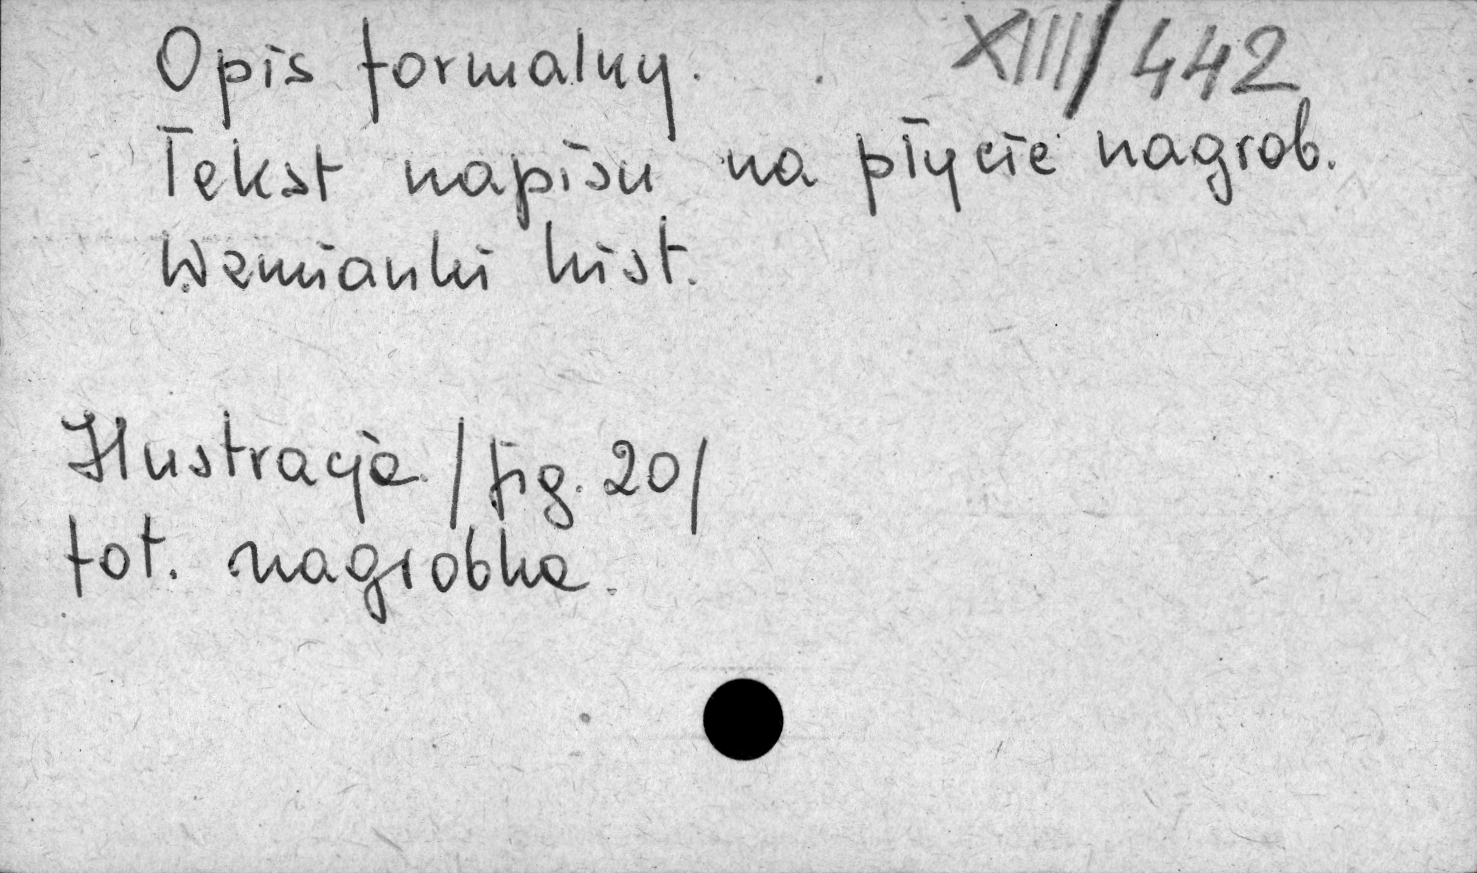 Opis formalny. XIIII/442
Tekst napisu na płycie nagrob.
Wzmianki hist.
Ilustracja /fig. 20/
fot. nagrobka.